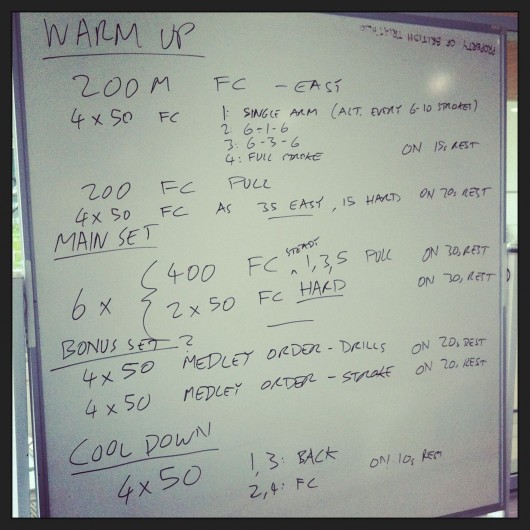 WARM UP
PROPERTY OF BRITISH TRIATHLO
200M FC - EASY
4 x 50 FC 1: SINGLE ARM (ALT. EVERY 6-10 STROKES)
2: 6-1-6
3: 6-3-6
4: FULL STROKE ON 15s REST
200 FC PULL
4 x 50 FC AS 35 EASY, 15 HARD ON 20s REST
MAIN SET
6 x { 400 FC STEADY ^ 1,3,5 PULL ON 30s REST
2 x 50 FC HARD ON 30s REST
BONUS SET ?
4 x 50 MEDLEY ORDER - DRILLS ON 20s REST
4 x 50 MEDLEY ORDER - STROKE ON 20s REST
COOL DOWN
4 x 50 1,3: BACK ON 10s REST
2,4: FC